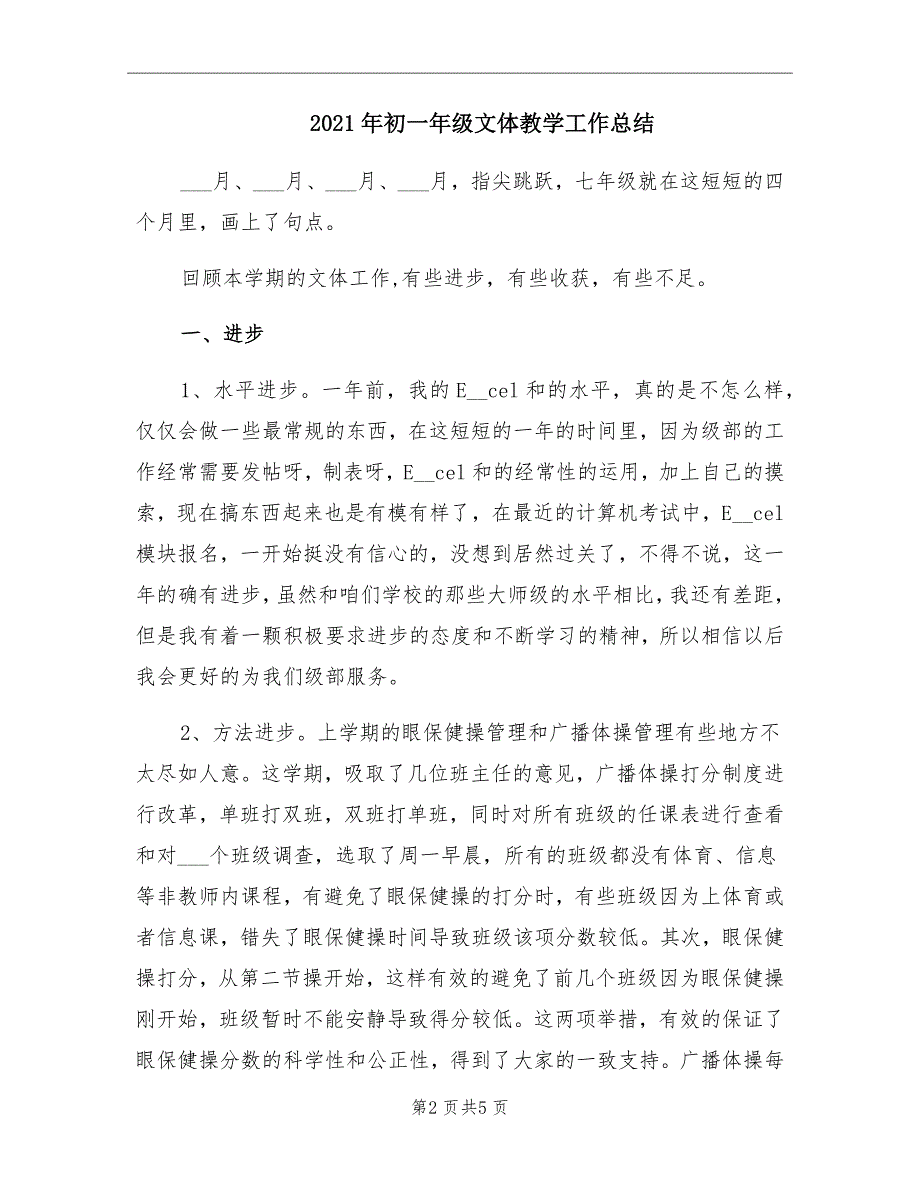 2021 年初一年级文体教学工作总结
___月、___月、___月、___月，指尖跳跃，七年级就在这短短的四
个月里，画上了句点。
回顾本学期的文体工作,有些进步，有些收获，有些不足。
一、进步
1、水平进步。一年前，我的 E__cel 和的水平，真的是不怎么样，
仅仅会做一些最常规的东西，在这短短的一年的时间里，因为级部的工
作经常需要发帖呀，制表呀，E__cel 和的经常性的运用，加上自己的摸
索，现在搞东西起来也是有模有样了，在最近的计算机考试中，E__cel
模块报名，一开始挺没有信心的，没想到居然过关了，不得不说，这一
年的确有进步，虽然和咱们学校的那些大师级的水平相比，我还有差距，
但是我有着一颗积极要求进步的态度和不断学习的精神，所以相信以后
我会更好的为我们级部服务。
2、方法进步。上学期的眼保健操管理和广播体操管理有些地方不
太尽如人意。这学期，吸取了几位班主任的意见，广播体操打分制度进
行改革，单班打双班，双班打单班，同时对所有班级的任课表进行查看
和对___个班级调查，选取了周一早晨，所有的班级都没有体育、信息
等非教师内课程，有避免了眼保健操的打分时，有些班级因为上体育或
者信息课，错失了眼保健操时间导致班级该项分数较低。其次，眼保健
操打分，从第二节操开始，这样有效的避免了前几个班级因为眼保健操
刚开始，班级暂时不能安静导致得分较低。这两项举措，有效的保证了
眼保健操分数的科学性和公正性，得到了大家的一致支持。广播体操每
第2 页共5 页